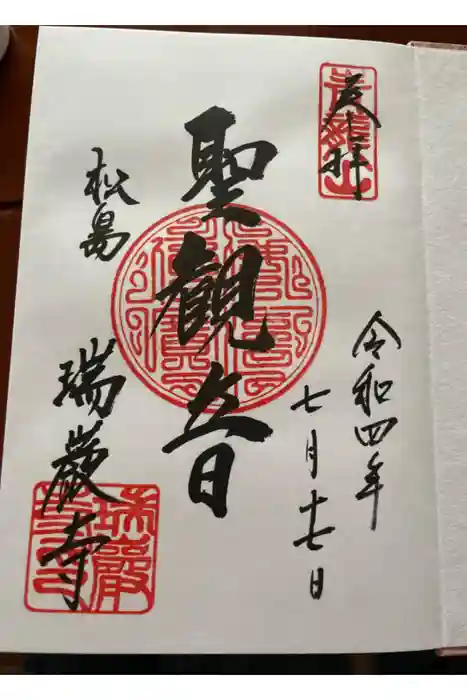 奉拝
青龍山
令和四年
七月十七日
聖観音
松島
瑞巌寺
瑞巌寺